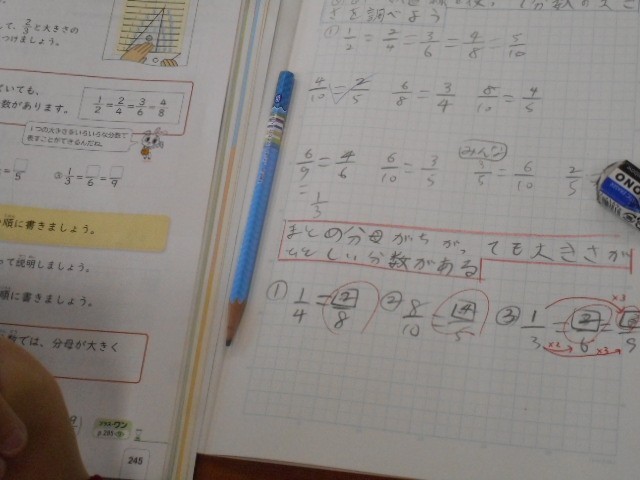 て、2/3と大きさの
つけましょう。
ていても、
数があります。
1/2=2/4=3/6=4/8
1つの大きさをいろいろな分数で
表すことができるんだね。
③ 1/3=□/6=□/9
順に書きましょう。
って説明しましょう。
順に書きましょう。
数では、分母が大きく
プラス・ワン
245
を調べよう
① 1/2=2/4=3/6=4/8=5/10
4/10=2/5 6/8=3/4 8/10=4/5
6/9=4/6 6/10=3/5 みんな 3/5=6/10 2/5
=1/3
まとめ分母がちがっても大きさが
ひとしい分数がある
① 1/4=2/8 ② 8/10=4/5 ③ 1/3=2/6=3/9
×2 ×3 ×3
ONO